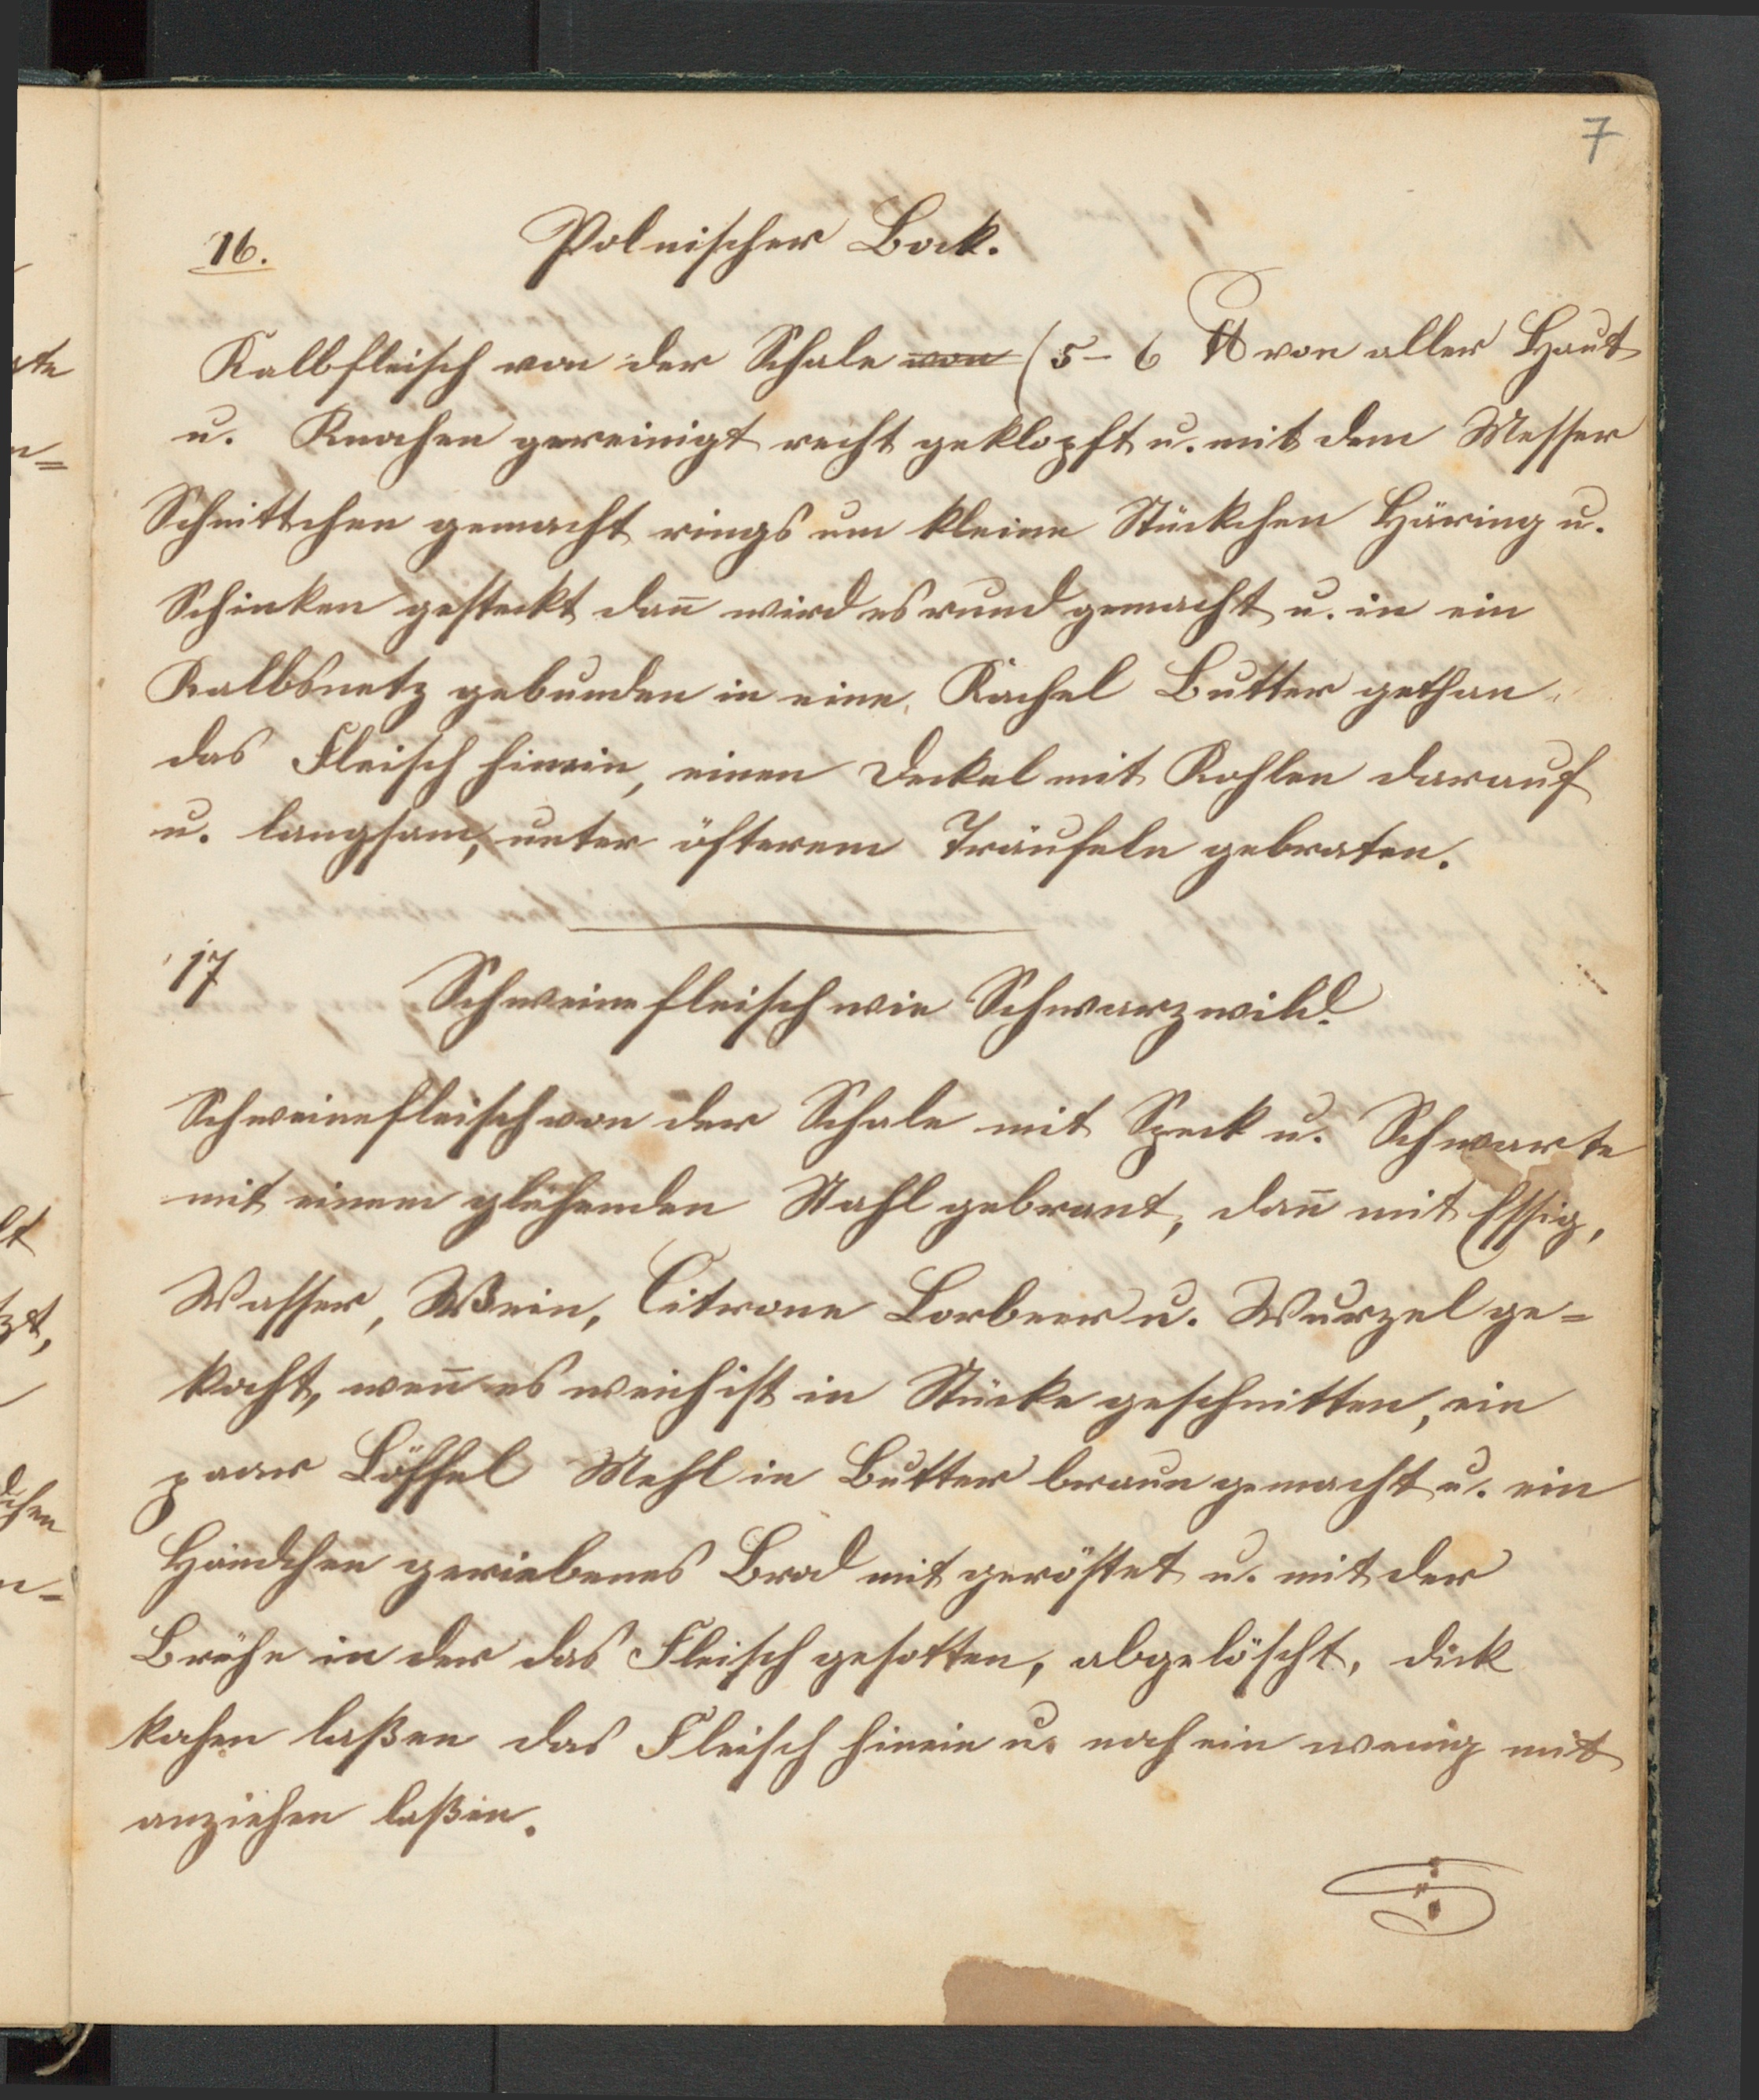 7
16. Polnischer Bock.
Kalbfleisch von der Schale von (5-6 ℔ von aller Haut
u. Knochen gereinigt recht geklopft u. mit dem Messer
Schnittchen gemacht rings um kleine Stückchen Häring u.
Schinken gesteckt dan̄ wird es rund gemacht u. in ein
Kalbsnetz gebunden in eine Kachel Butter gethan
das Fleisch hinein, einen Deckel mit Kohlen darauf
u. langsam, unter öfterem Träufeln gebraten.
17 Schweinefleisch wie Schwarzwild.
Schweinefleisch von der Schale mit Speck u. Schwarte
mit einem glühenden Stahl gebrant, dan̄ mit Essig,
Wasser, Wein, Citrone Lorbeer u. Wurzel ge=
kocht, wen̄ es weich ist in Stücke geschnitten, ein
paar Löffel Mehl in Butter braun gemacht u. ein
Händchen geriebenes Brod mit geröstet u. mit der
Brühe in der das Fleisch gesotten, abgelöscht, dick
kochen laßen das Fleisch hinein u. noch ein wenig mit
anziehen laßen.